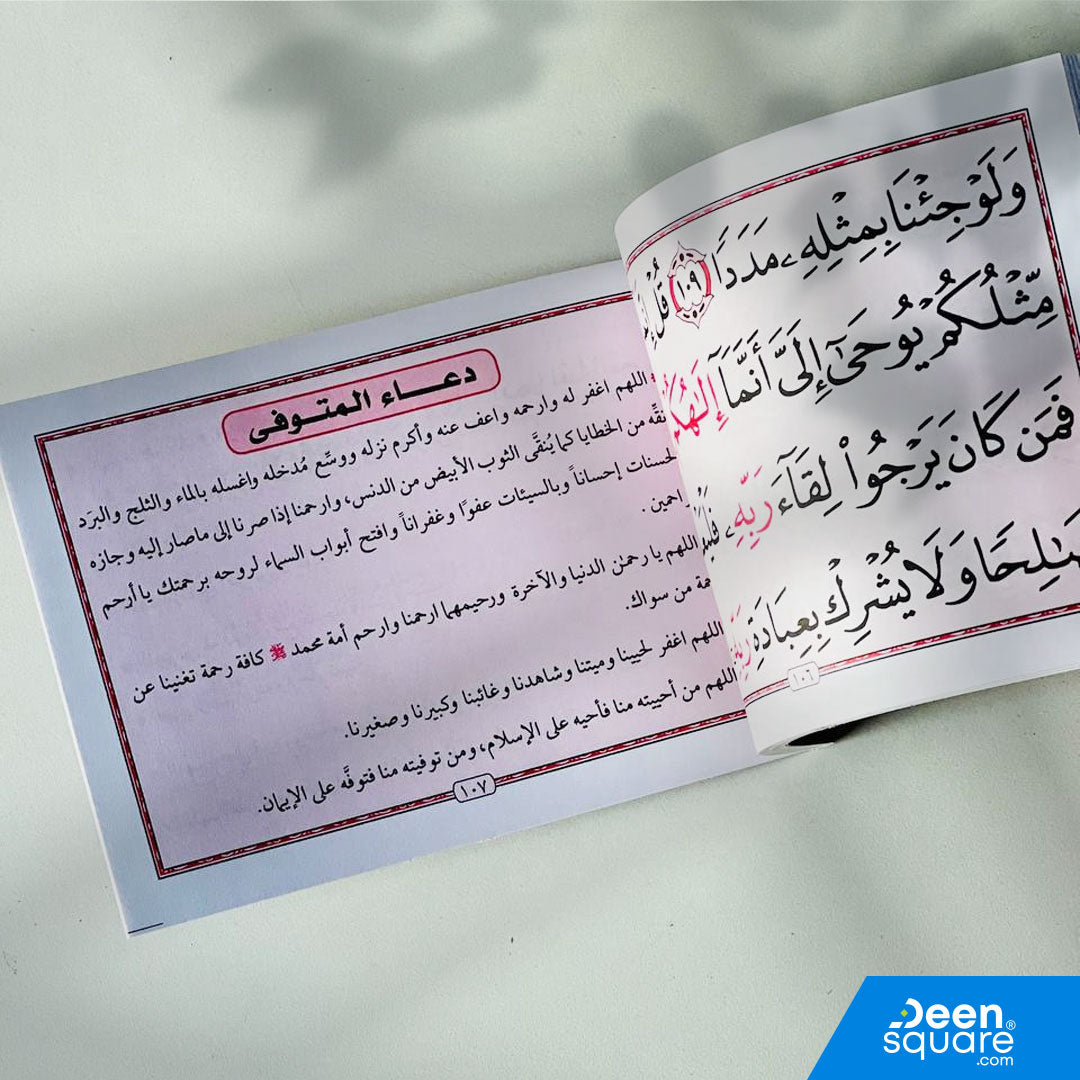 وَلَوْ جِئْنَا بِمِثْلِهِۦ مَدَدًا ١٠٩ قُلْ
مِّثْلُكُمْ يُوحَىٰٓ إِلَىَّ أَنَّمَآ
فَمَن كَانَ يَرْجُوا۟ لِقَآءَ رَبِّهِۦ
وَلَا يُشْرِكْ بِعِبَادَةِ
١٠٦
دعـاء المتـوفى
اللهم اغفر له وارحمه واعف عنه وأكرم نزله ووسِّع مُدخله واغسله بالماء والثلج والبرَد
من الخطايا كما يُنقَّى الثوب الأبيض من الدنس، وارحمنا إذا صرنا إلى ماصار إليه وجازه
إحساناً وبالسيئات عفوًا وغفراناً وافتح أبواب السماء لروحه برحمتك يا أرحم
اللهم يا رحمٰن الدنيا والآخرة ورحيمهما ارحمنا وارحم أمة محمد ﷺ كافة رحمة تغنينا عن
من سواك.
اللهم اغفر لحيينا وميتنا وشاهدنا وغائبنا وكبيرنا وصغيرنا.
اللهم من أحييته منا فأحيه على الإسلام، ومن توفيته منا فتوفَّه على الإيمان.
١٠٧
Deen
square®
.com